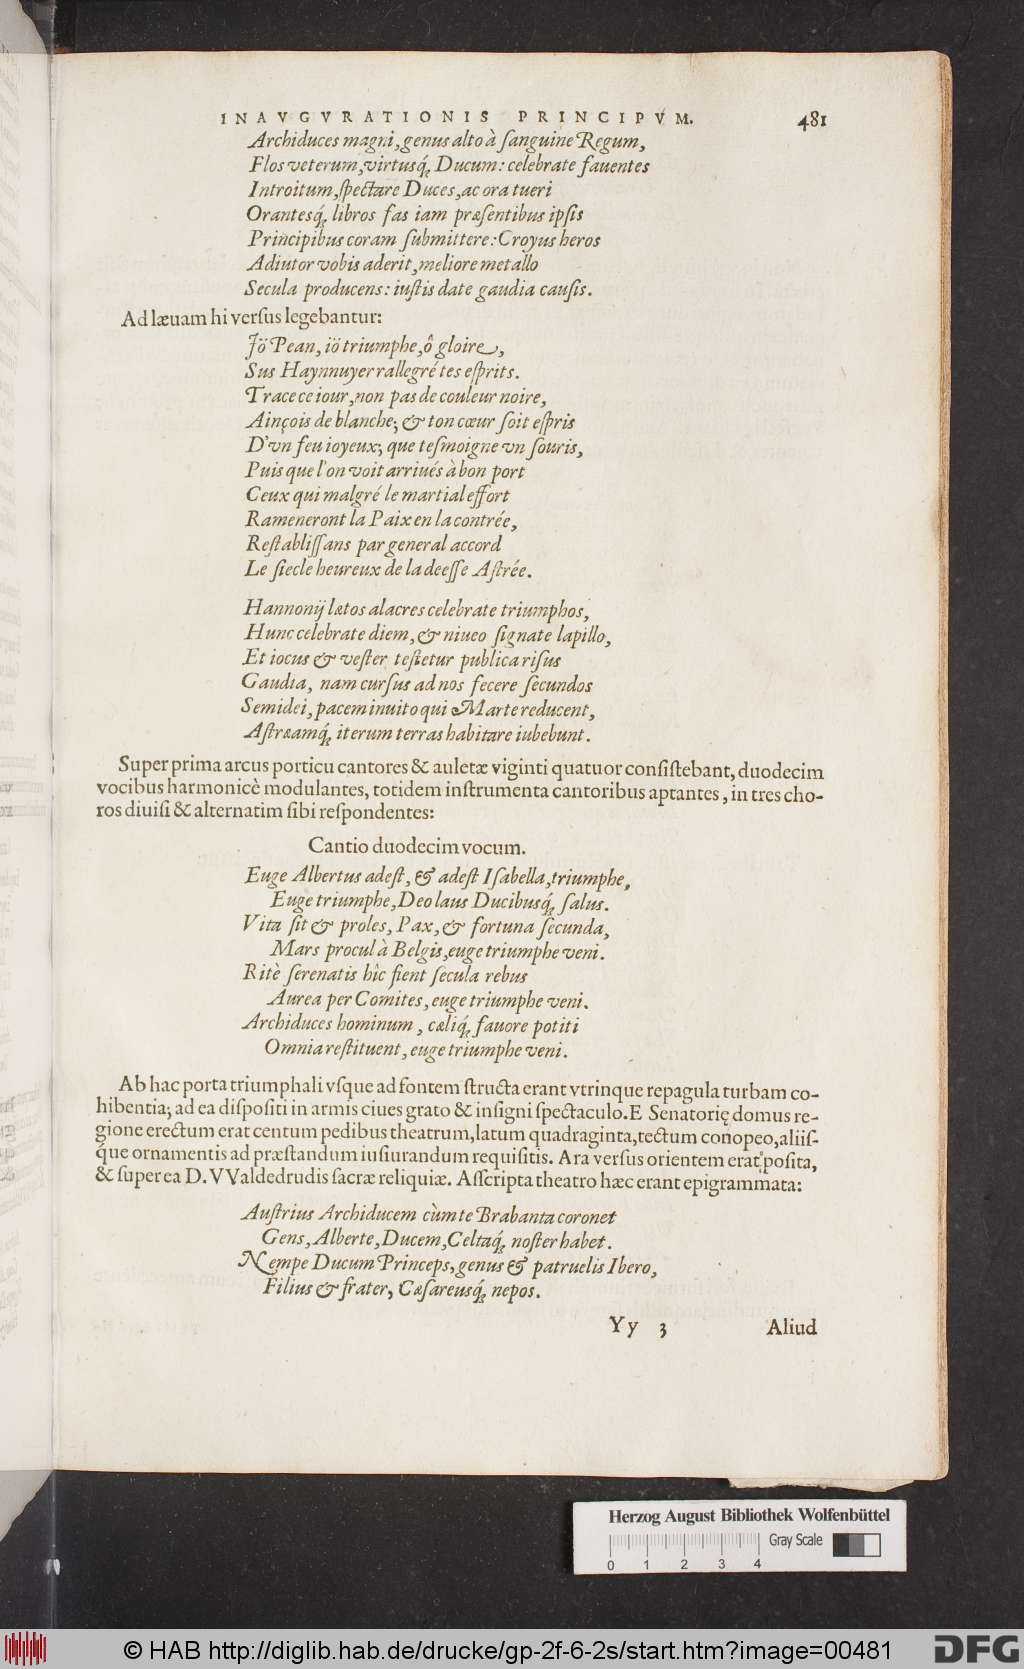 INAVGVRATIONIS PRINCIPVM. 481
Archiduces magni, genus alto à ſanguine Regum,
Flos veterum, virtusq́; Ducum: celebrate fauentes
Introitum, ſpectare Duces, ac ora tueri
Orantesq́; libros fas iam præſentibus ipſis
Principibus coram ſubmittere: Croyus heros
Adiutor vobis aderit, meliore metallo
Secula producens: iuſtis date gaudia cauſis.
Ad læuam hi verſus legebantur:
Jö Pean, iö triumphe, ô gloire,
Sus Haynnuyer rallegré tes eſprits.
Trace ce iour, non pas de couleur noire,
Ainçois de blanche; & ton cœur ſoit eſpris
D'vn feu ioyeux; que teſmoigne vn ſouris,
Puis que l'on voit arriués à bon port
Ceux qui malgré le martial effort
Rameneront la Paix en la contrée,
Reſtabliſſans par general accord
Le ſiecle heureux de la deeſſe Aſtrée.
Hannonij lætos alacres celebrate triumphos,
Hunc celebrate diem, & niueo ſignate lapillo,
Et iocus & veſter teſtetur publica riſus
Gaudia, nam curſus ad nos fecere ſecundos
Semidei, pacem inuito qui Marte reducent,
Aſtræamq́; iterum terras habitare iubebunt.
Super prima arcus porticu cantores & auletæ viginti quatuor conſiſtebant, duodecim
vocibus harmonicè modulantes, totidem inſtrumenta cantoribus aptantes, in tres cho-
ros diuiſi & alternatim ſibi reſpondentes:
Cantio duodecim vocum.
Euge Albertus adeſt, & adeſt Iſabella, triumphe,
Euge triumphe, Deo laus Ducibusq́; ſalus.
Vita ſit & proles, Pax, & fortuna ſecunda,
Mars procul à Belgis, euge triumphe veni.
Ritè ſerenatis hîc fient ſecula rebus
Aurea per Comites, euge triumphe veni.
Archiduces hominum, cæliq́; fauore potiti
Omnia reſtituent, euge triumphe veni.
Ab hac porta triumphali vſque ad fontem ſtructa erant vtrinque repagula turbam co-
hibentia; ad ea diſpoſiti in armis ciues grato & inſigni ſpectaculo. E Senatorię domus re-
gione erectum erat centum pedibus theatrum, latum quadraginta, tectum conopeo, aliiſ-
q́ue ornamentis ad præſtandum iuſiurandum requiſitis. Ara verſus orientem erat poſita,
& ſuper ea D. VValdedrudis ſacræ reliquiæ. Aſſcripta theatro hæc erant epigrammata:
Auſtrius Archiducem cùm te Brabanta coronet
Gens, Alberte, Ducem, Celtaq́; noſter habet.
Nempe Ducum Princeps, genus & patruelis Ibero,
Filius & frater, Cæſareusq́; nepos.
Yy 3 Aliud
Herzog August Bibliothek Wolfenbüttel
Gray Scale
0 1 2 3 4
© HAB http://diglib.hab.de/drucke/gp-2f-6-2s/start.htm?image=00481
DFG